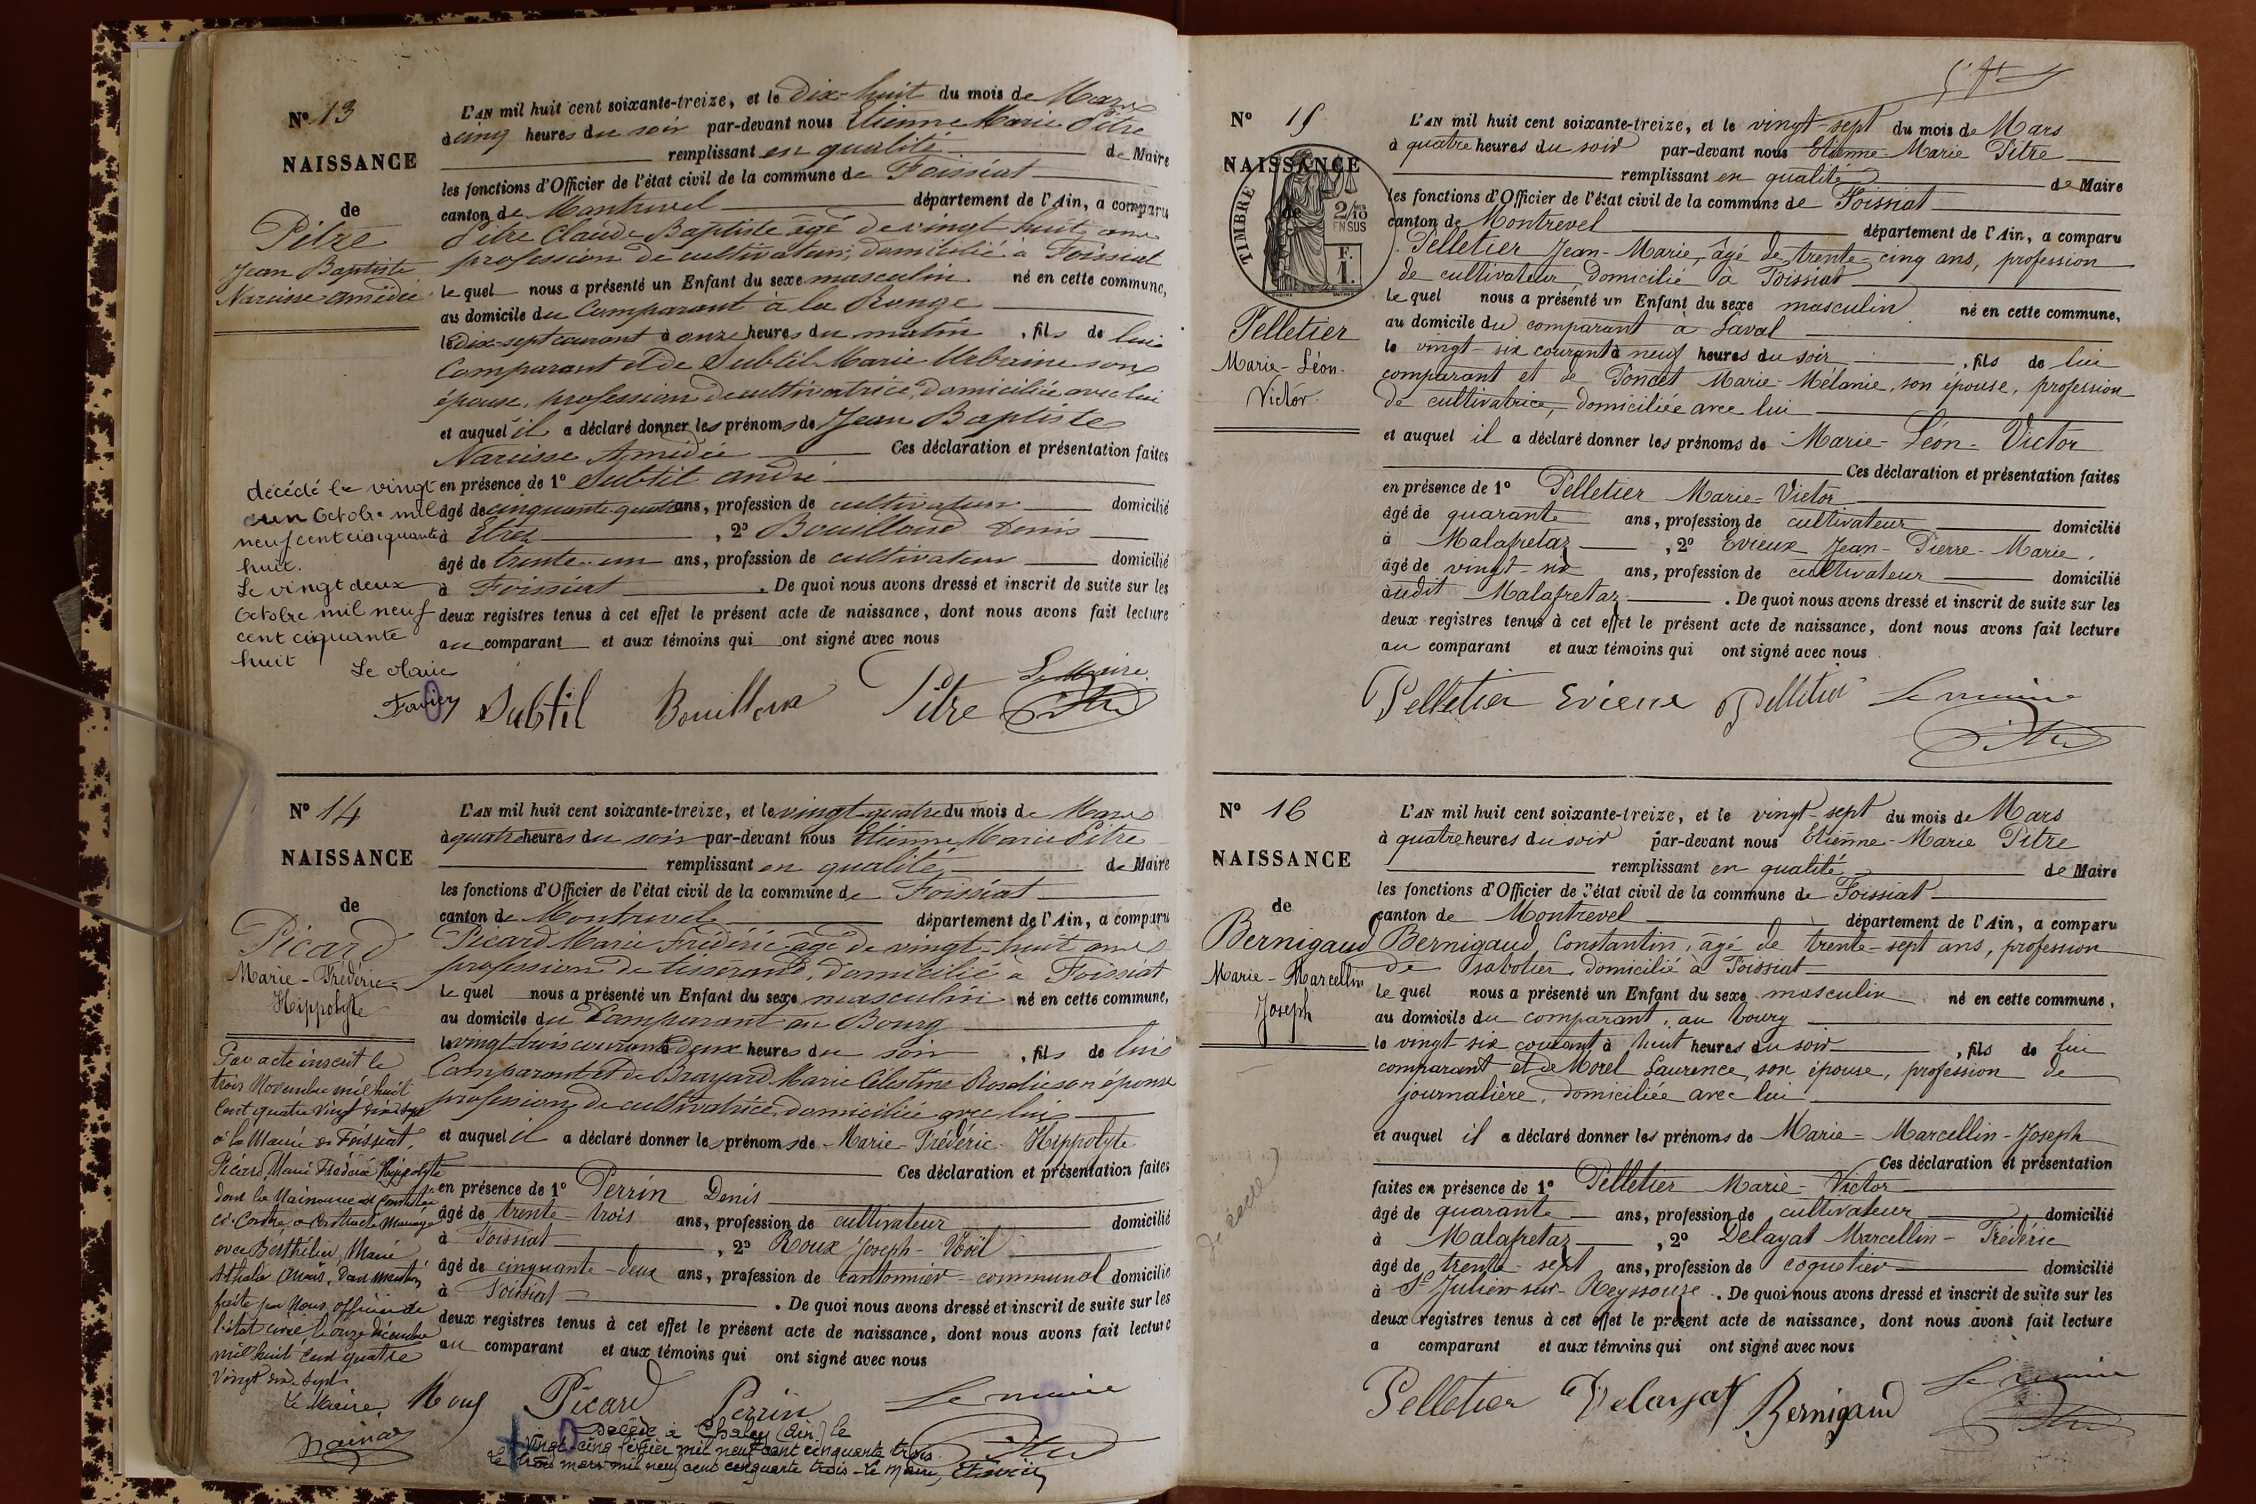 N° 13
NAISSANCE
de
Pitre
Jean Baptiste
Narcisse Amédée
L'AN mil huit cent soixante-treize, et le Dix-huit du mois de Mars
à cinq heures du soir par-devant nous Etienne Marie Pitre
remplissant en qualité de Maire
les fonctions d'Officier de l'état civil de la commune de Foissiat
canton de Montrevel département de l'Ain, a comparu
Pitre Claude Baptiste âgé de vingt huit ans
profession de cultivateur, domicilié à Foissiat
lequel nous a présenté un Enfant du sexe masculin né en cette commune,
au domicile du Comparant à la Ronge
le Dix-sept courant à onze heures du matin, fils de lui
Comparant et de Subtil Marie Urbaine son
épouse, profession de cultivatrice, domiciliée avec lui
et auquel il a déclaré donner les prénoms de Jean Baptiste
Narcisse Amédée Ces déclaration et présentation faites
en présence de 1° Subtil André
âgé de cinquante-quatre ans, profession de cultivateur domicilié
à Etrez, 2° Bouilloux Denis
âgé de trente-un ans, profession de cultivateur domicilié
à Foissiat. De quoi nous avons dressé et inscrit de suite sur les
deux registres tenus à cet effet le présent acte de naissance, dont nous avons fait lecture
au comparant et aux témoins qui ont signé avec nous
Le Maire
Subtil Bouilloux Pitre Pitre
décédé le vingt
un Octobre mil
neuf cent cinquante
huit.
Le vingt deux
Octobre mil neuf
cent cinquante
huit
Le Maire
N° 14
NAISSANCE
de
Picard
Marie-Frédéric-
Hippolyte
L'AN mil huit cent soixante-treize, et le vingt-quatre du mois de Mars
à quatre heures du soir par-devant nous Etienne Marie Pitre
remplissant en qualité de Maire
les fonctions d'Officier de l'état civil de la commune de Foissiat
canton de Montrevel département de l'Ain, a comparu
Picard Marie Frédéric âgé de vingt-huit ans
profession de tisserand, domicilié à Foissiat
lequel nous a présenté un Enfant du sexe masculin né en cette commune,
au domicile du Comparant au Bourg
le vingt-trois courant à deux heures du soir, fils de lui
Comparant et de Brayard Marie Célestine Rosalie son épouse
profession de cultivatrice, domiciliée avec lui
et auquel il a déclaré donner les prénoms de Marie-Frédéric-Hippolyte
Ces déclaration et présentation faites
en présence de 1° Perrin Denis
âgé de trente-trois ans, profession de cultivateur domicilié
à Foissiat, 2° Roux Joseph-Noël
âgé de cinquante-deux ans, profession de cantonnier-communal domicilié
à Foissiat. De quoi nous avons dressé et inscrit de suite sur les
deux registres tenus à cet effet le présent acte de naissance, dont nous avons fait lecture
au comparant et aux témoins qui ont signé avec nous
Roux Picard Perrin Le maire
Pitre
Par acte inscrit le
trois Novembre mil huit
cent quatre vingt dix sept
à la Mairie de Foissiat,
Picard Marie Frédéric Hippolyte
dont la Naissance est constatée
ci-contre a contracté Mariage
avec Berthelin, Marie
Athalie Anaïs, Dont mention
faite par Nous, officier de
l'état civil le onze décembre
mil huit cent quatre
vingt dix-sept.
Le Maire,
Décédé à Chaley (Ain) le
vingt-cinq février mil neuf cent cinquante trois
Le trois mars mil neuf cent cinquante trois - Le Maire,
N° 15
NAISSANCE
de
TIMBRE
2/10
EN SUS
F.
1.
Pelletier
Marie-Léon-
Victor
L'AN mil huit cent soixante-treize, et le vingt-sept du mois de Mars
à quatre heures du soir par-devant nous Etienne-Marie Pitre
remplissant en qualité de Maire
les fonctions d'Officier de l'état civil de la commune de Foissiat
canton de Montrevel département de l'Ain, a comparu
Pelletier Jean-Marie, âgé de trente-cinq ans, profession
de cultivateur, domicilié à Foissiat
lequel nous a présenté un Enfant du sexe masculin né en cette commune,
au domicile du comparant à Laval
le vingt-six courant à neuf heures du soir, fils de lui
comparant et de Poncet Marie-Mélanie, son épouse, profession
de cultivatrice, domiciliée avec lui
et auquel il a déclaré donner les prénoms de Marie-Léon-Victor
Ces déclaration et présentation faites
en présence de 1° Pelletier Marie-Victor
âgé de quarante ans, profession de cultivateur domicilié
à Malafretaz, 2° Evieux Jean-Pierre-Marie,
âgé de vingt-six ans, profession de cultivateur domicilié
audit Malafretaz. De quoi nous avons dressé et inscrit de suite sur les
deux registres tenus à cet effet le présent acte de naissance, dont nous avons fait lecture
au comparant et aux témoins qui ont signé avec nous
Pelletier Evieux Pelletier Le maire
Pitre
N° 16
NAISSANCE
de
Bernigaud
Marie-Marcellin
Joseph
L'AN mil huit cent soixante-treize, et le vingt-sept du mois de Mars
à quatre heures du soir par-devant nous Etienne-Marie Pitre
remplissant en qualité de Maire
les fonctions d'Officier de l'état civil de la commune de Foissiat
canton de Montrevel département de l'Ain, a comparu
Bernigaud, Constantin, âgé de trente-sept ans, profession
de sabotier, domicilié à Foissiat
lequel nous a présenté un Enfant du sexe masculin né en cette commune,
au domicile du comparant, au bourg
le vingt-six courant à huit heures du soir, fils de lui
comparant et de Morel Laurence, son épouse, profession de
journalière, domiciliée avec lui
et auquel il a déclaré donner les prénoms de Marie-Marcellin-Joseph
Ces déclaration et présentation
faites en présence de 1° Pelletier Marie-Victor
âgé de quarante ans, profession de cultivateur domicilié
à Malafretaz, 2° Delayat Marcellin-Frédéric
âgé de trente-sept ans, profession de coquetier domicilié
à St Julien-sur-Reyssouze. De quoi nous avons dressé et inscrit de suite sur les
deux registres tenus à cet effet le présent acte de naissance, dont nous avons fait lecture
a comparant et aux témoins qui ont signé avec nous
Pelletier Delayat Bernigaud Le maire
Pitre